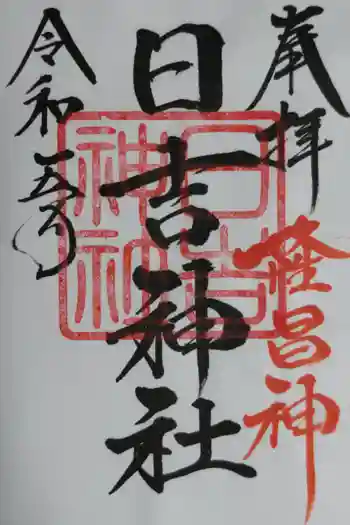 奉拝
隆昌神
日吉神社
日吉
神社
令和五